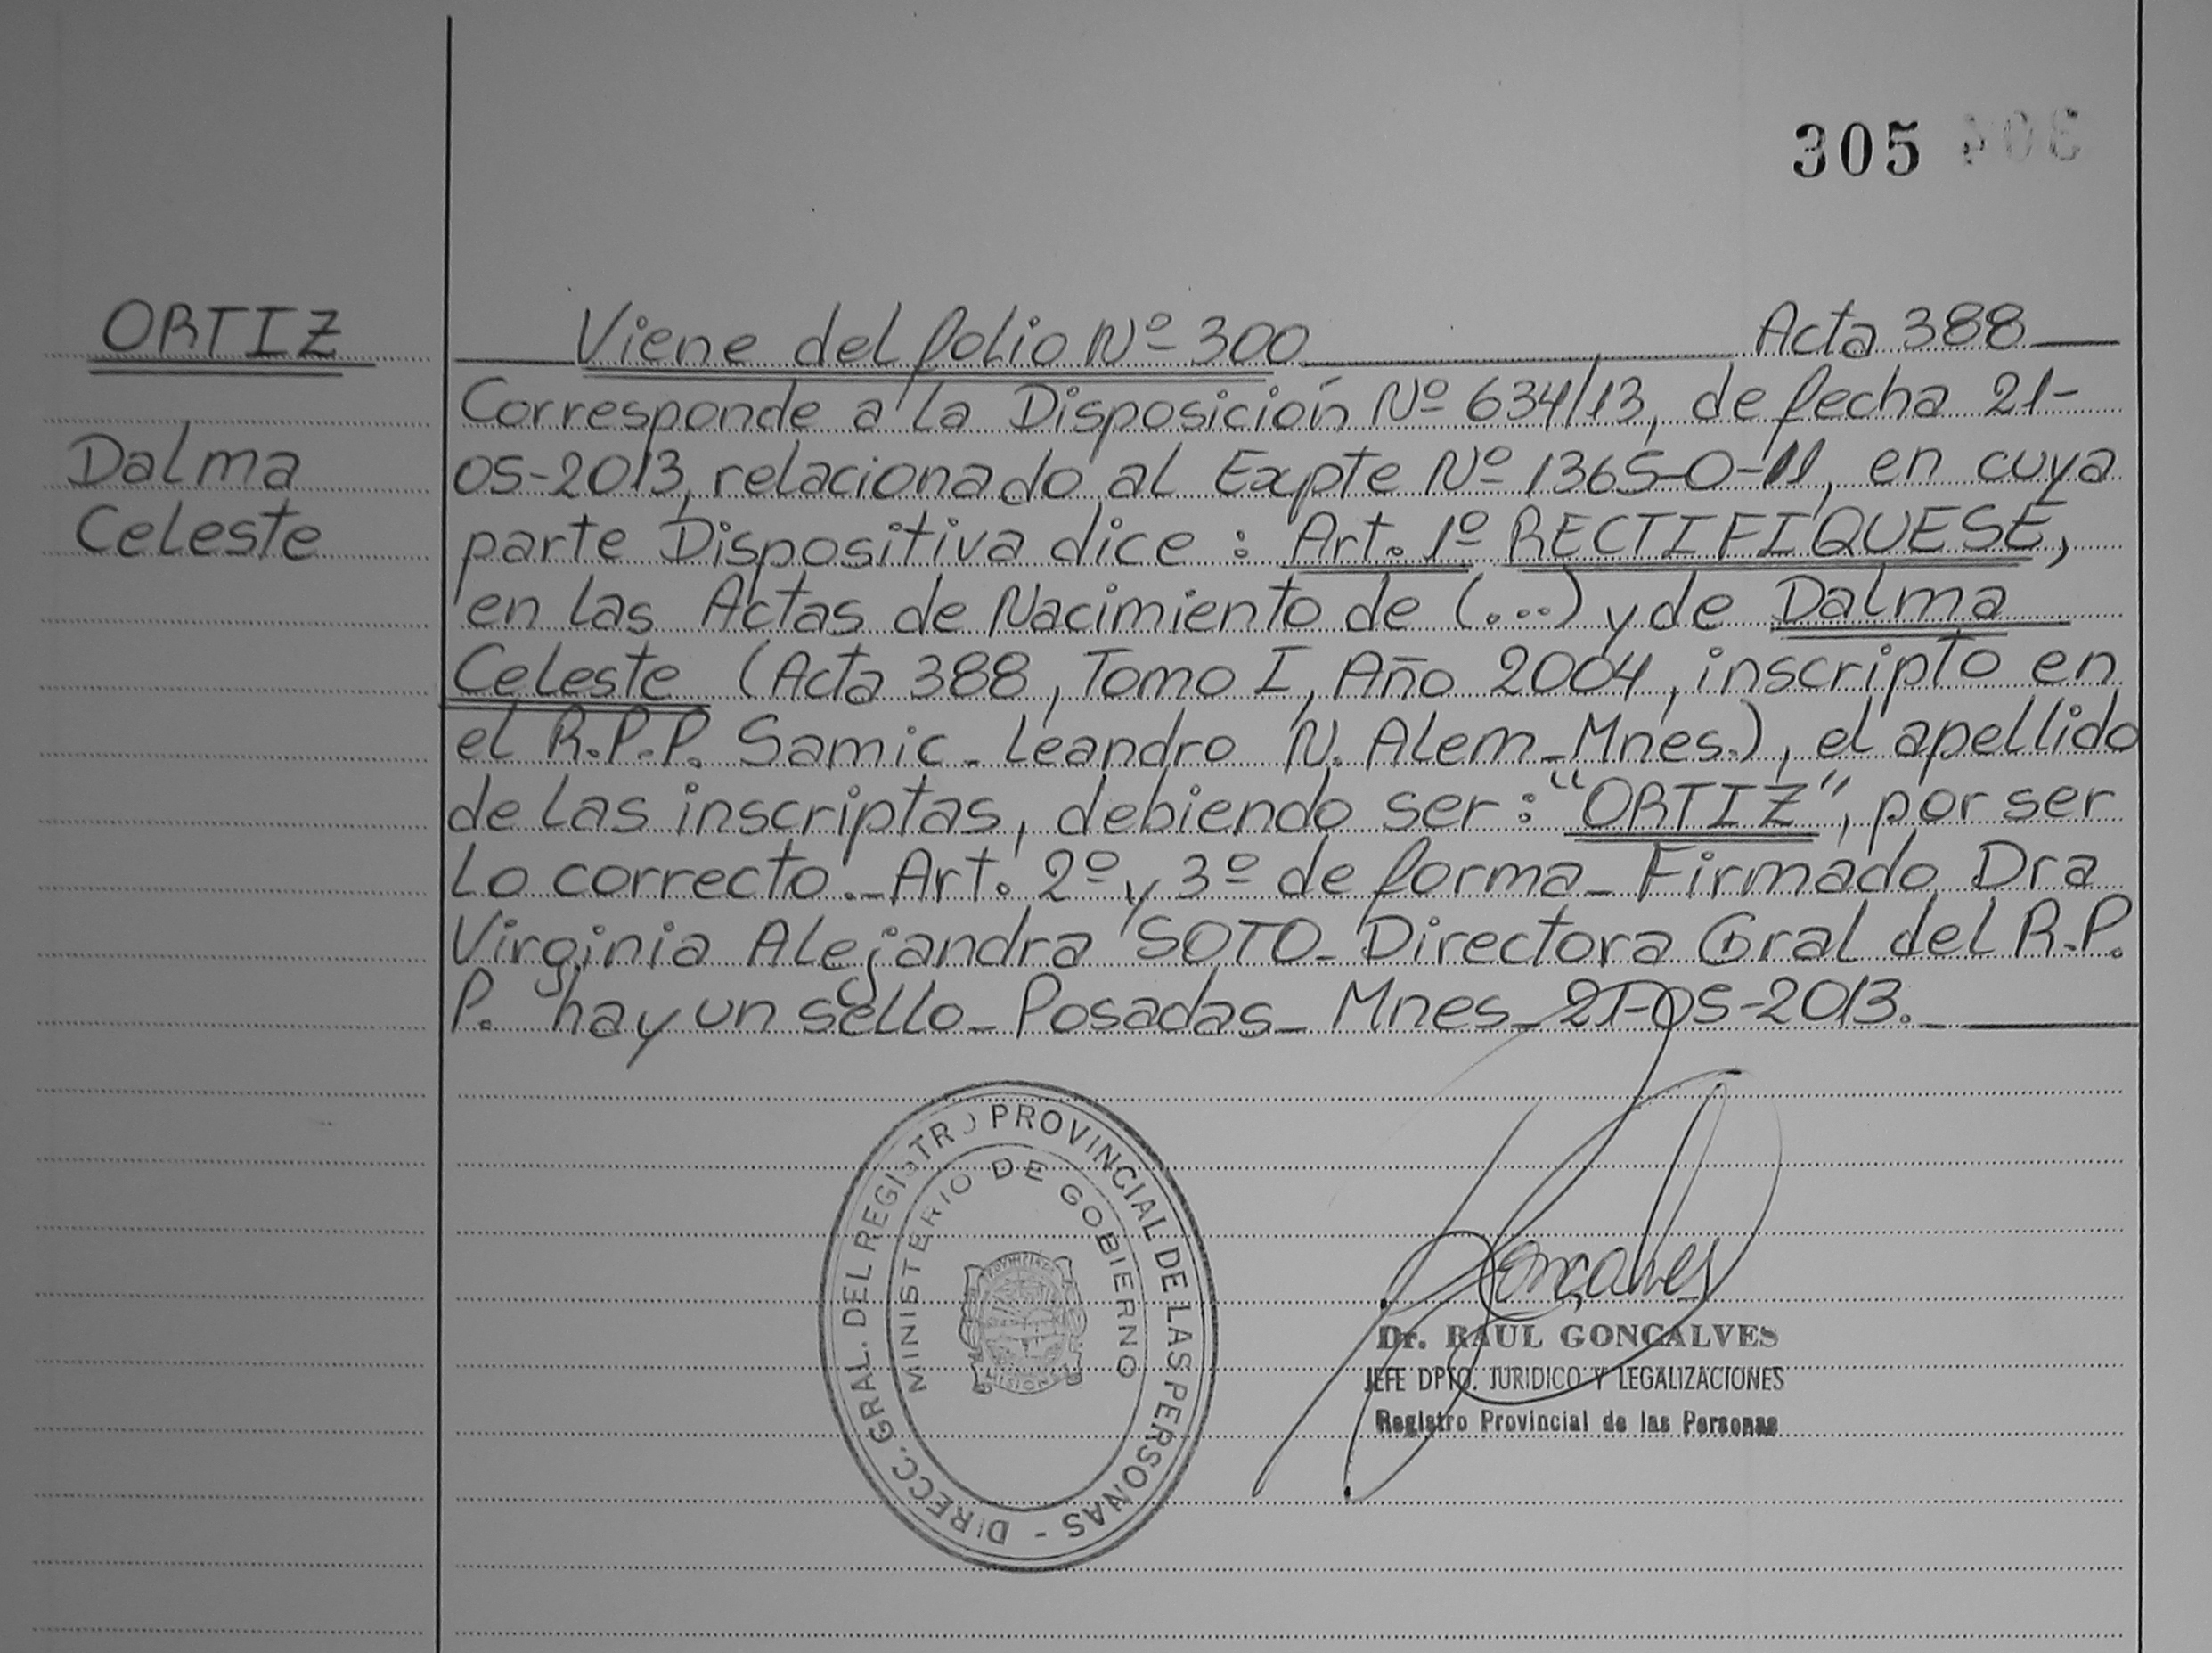 305 304
ORTIZ
Dalma
Celeste
Viene del folio Nº 300 Acta 388
Corresponde a la Disposición Nº 634/13, de fecha 21-
05-2013, relacionado al Expte Nº 1365-O-11, en cuya
parte Dispositiva dice : Art. 1º RECTIFIQUESE,
en las Actas de Nacimiento de (...) y de Dalma
Celeste (Acta 388, Tomo I, Año 2004, inscripto en
el R.P.P. Samic - Leandro N. Alem - Mnes.), el apellido
de las inscriptas, debiendo ser : "ORTIZ", por ser
lo correcto.- Art. 2º y 3º de forma - Firmado Dra
Virginia Alejandra SOTO - Directora Gral del R.P.
P. hay un sello - Posadas - Mnes - 21-05-2013.
DIRECC. GRAL. DEL REGISTRO PROVINCIAL DE LAS PERSONAS -
MINISTERIO DE GOBIERNO
PROVINCIA
MISIONES
Gonçalves
Dr. RAUL GONCALVES
JEFE DPTO. JURIDICO Y LEGALIZACIONES
Registro Provincial de las Personas